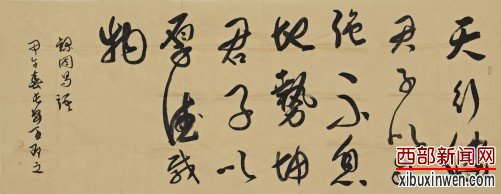 天行健
君子以
强不息
地勢坤
君子以
厚德載
物
錄周易語
甲午春長安
西部新闻网
xibuxinwen.com